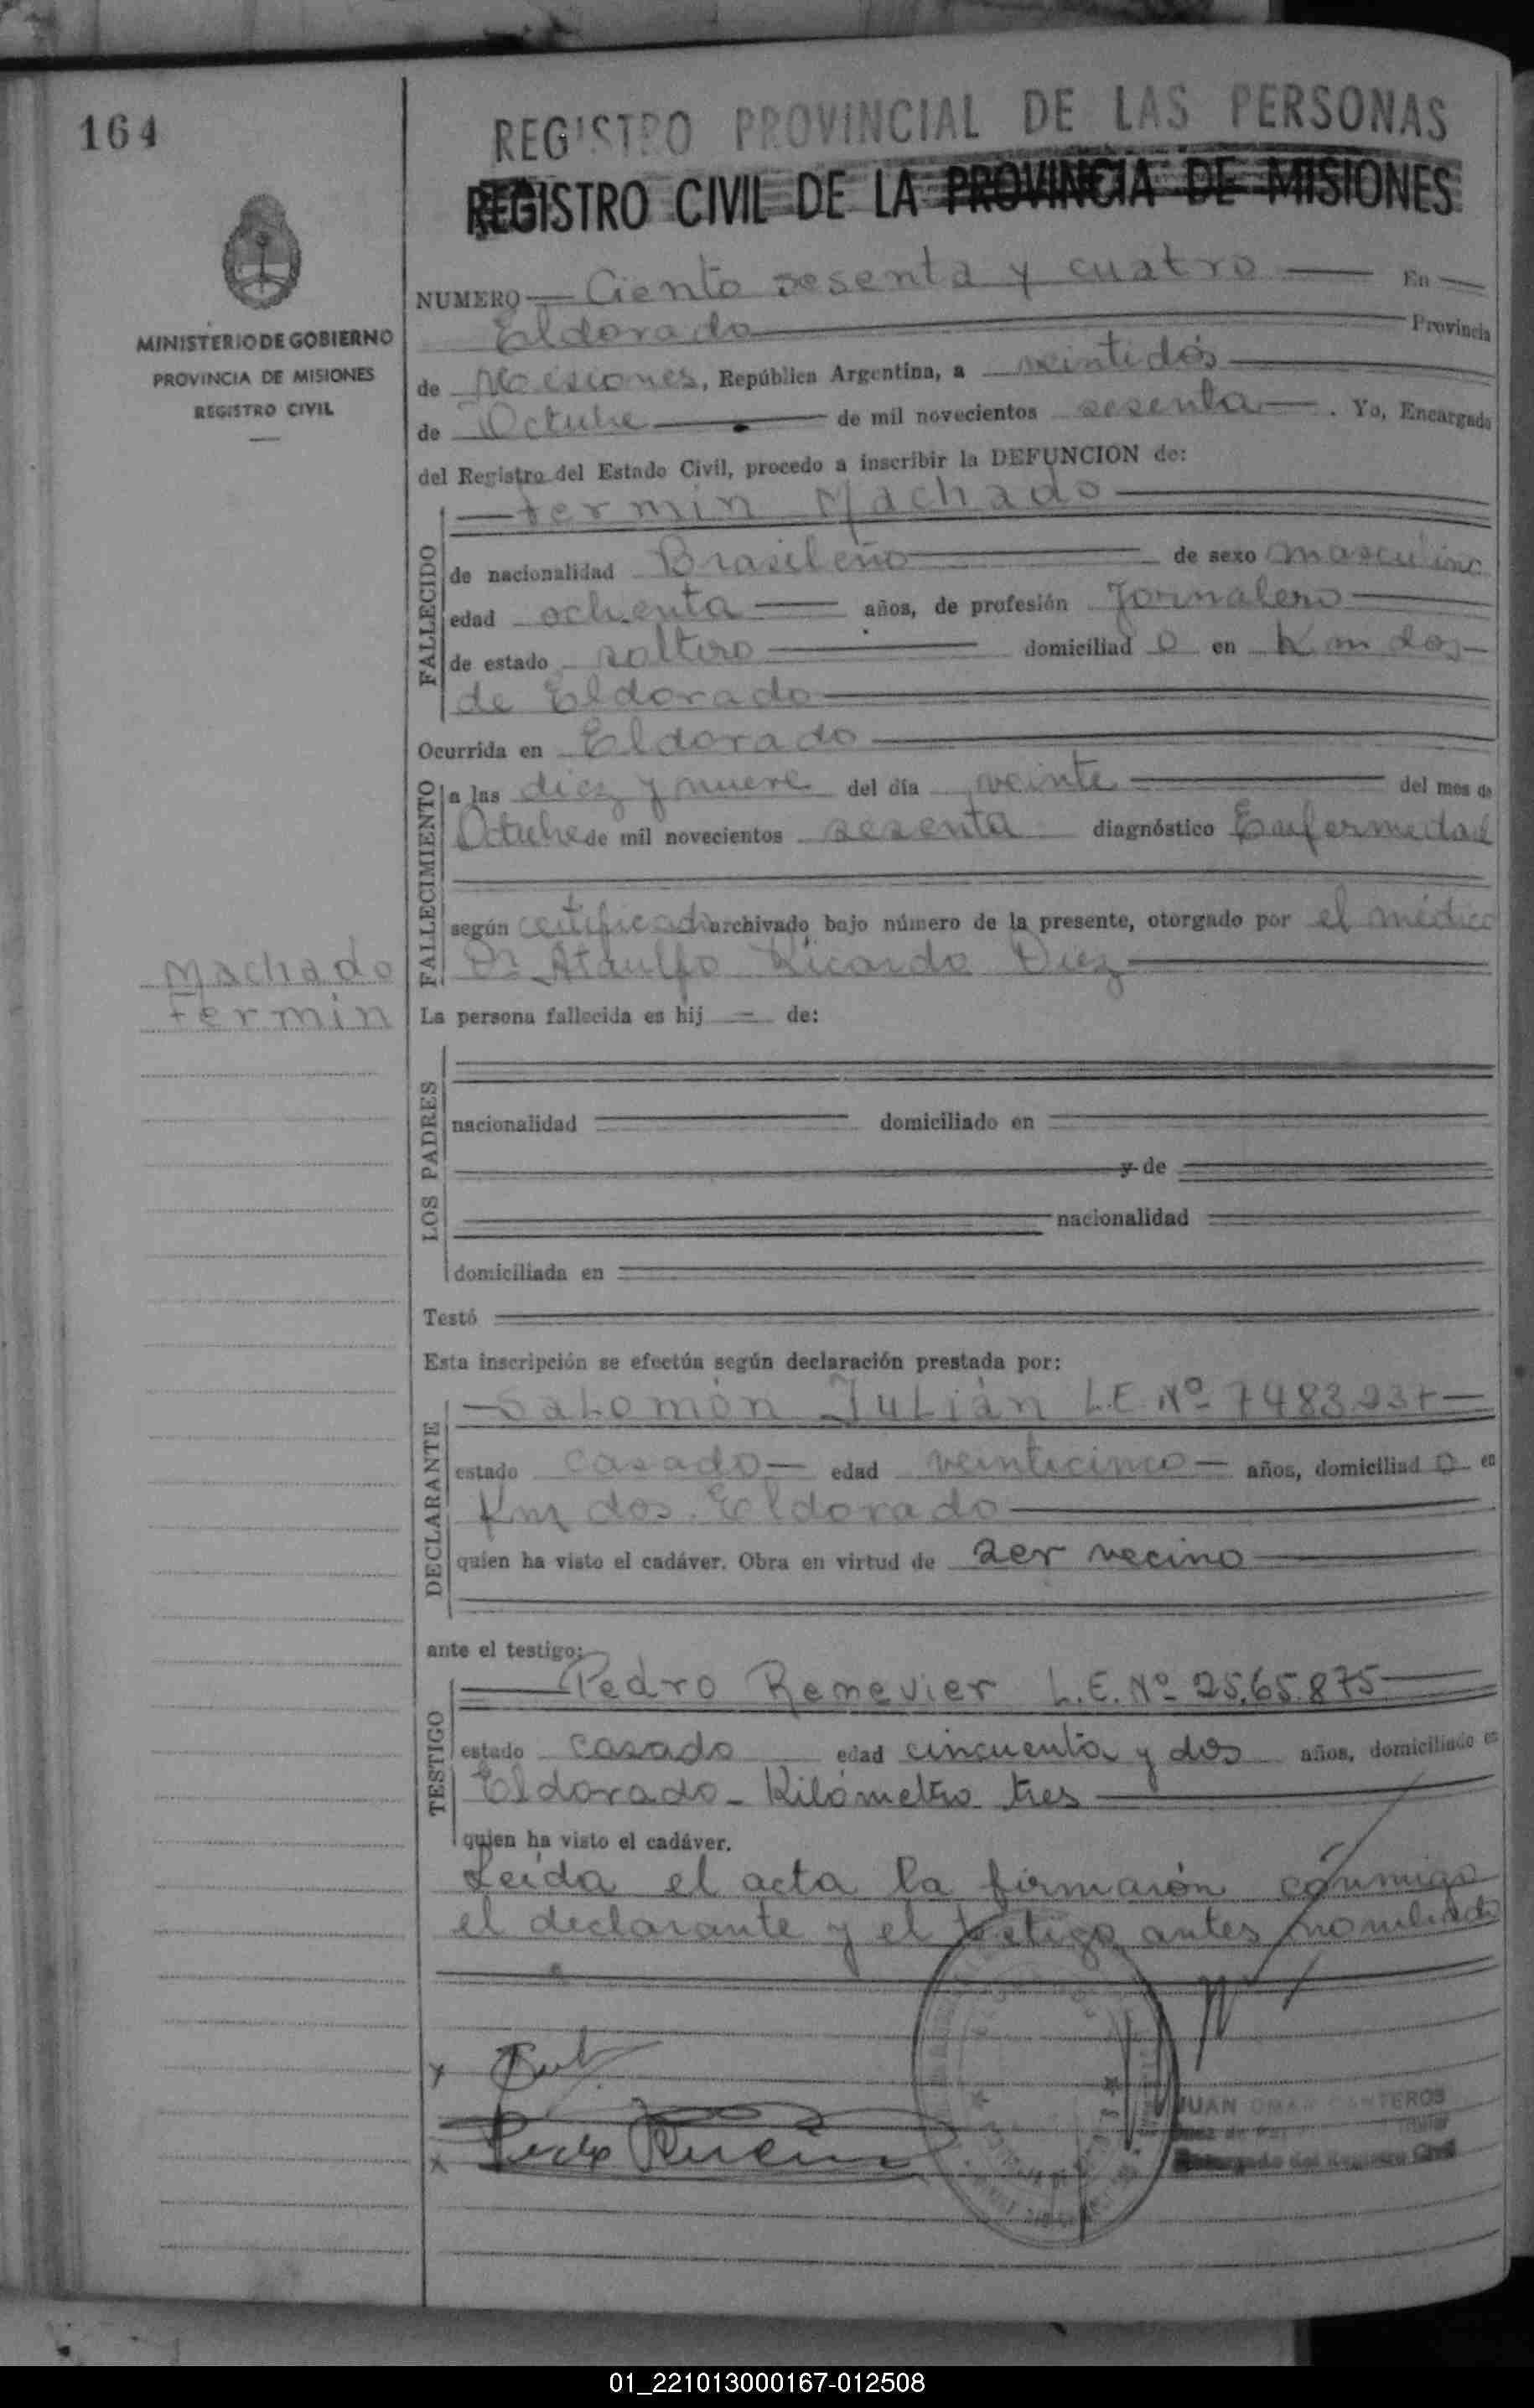 164
REGISTRO PROVINCIAL DE LAS PERSONAS
REGISTRO CIVIL DE LA PROVINCIA DE MISIONES
MINISTERIO DE GOBIERNO
PROVINCIA DE MISIONES
REGISTRO CIVIL
NUMERO Ciento sesenta y cuatro En
Eldorado Provincia
de Misiones, República Argentina, a veintidós
de Octubre de mil novecientos sesenta. Yo, Encargado
del Registro del Estado Civil, procedo a inscribir la DEFUNCION de:
Fermin Machado
FALLECIDO
de nacionalidad Brasileño de sexo masculino
edad ochenta años, de profesión Jornalero
de estado soltero domiciliad o en Km dos
de Eldorado
Ocurrida en Eldorado
FALLECIMIENTO
a las diez y nueve del día veinte del mes de
Octubre de mil novecientos sesenta diagnóstico Enfermedad
según certificado archivado bajo número de la presente, otorgado por el médico
Dr. Ataulfo Ricardo Diez
Machado
Fermin
La persona fallecida es hij de:
LOS PADRES
nacionalidad domiciliado en
y de
nacionalidad
domiciliada en
Testó
Esta inscripción se efectúa según declaración prestada por:
DECLARANTE
Salomón Julián L.E. Nº
estado casado edad veinticinco años, domiciliad o en
Km dos. Eldorado
quien ha visto el cadáver. Obra en virtud de ser vecino
ante el testigo:
TESTIGO
Pedro Renevier L.E. Nº 25.65.875
estado casado edad cincuenta y dos años, domiciliado en
Eldorado - Kilómetro tres
quien ha visto el cadáver.
Leída el acta la firmarón conmigo
el declarante y el testigo antes nombrado
JUAN OMAR CANTEROS
Encargado del Registro Civil
01_221013000167-012508